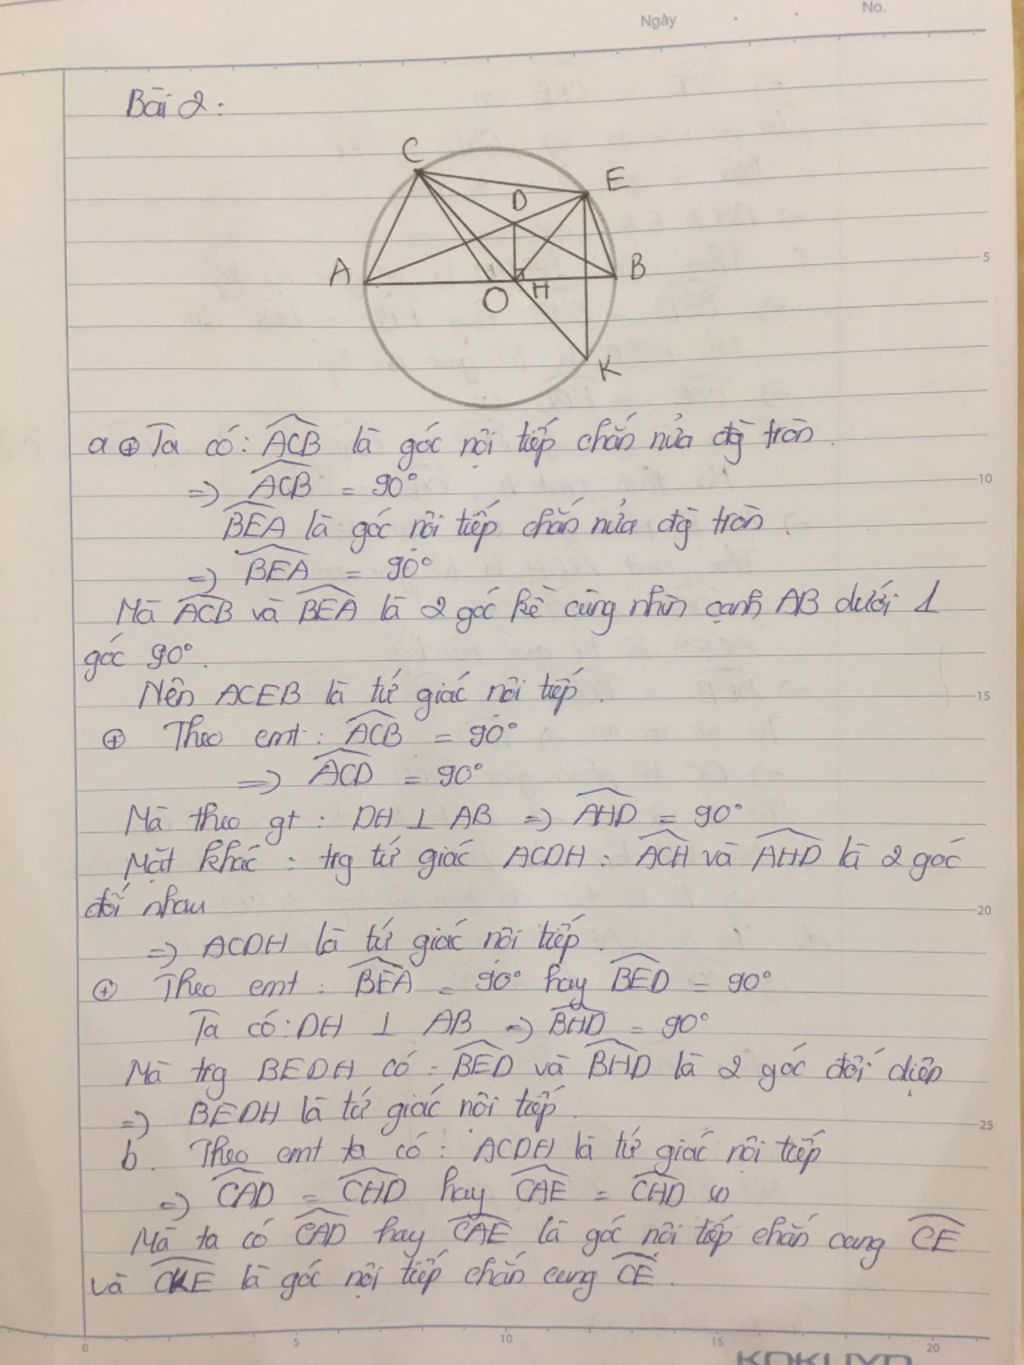 Ngày
No.
Bài 2:
C
E
D
A
B
O
H
K
5
a ⊕ Ta có: ACB là góc nội tiếp chắn nửa đg tròn.
=> ACB = 90°
10
BEA là góc nội tiếp chắn nửa đg tròn.
=> BEA = 90°
Mà ACB và BEA là 2 góc kề cùng nhìn cạnh AB dưới 1
góc 90°.
Nên ACEB là tứ giác nội tiếp.
15
⊕ Theo cmt: ACB = 90°
=> ACD = 90°
Mà theo gt: DH ⊥ AB => AHD = 90°
Mặt khác: trg tứ giác ACDH: ACH và AHD là 2 góc
đối nhau
20
=> ACDH là tứ giác nội tiếp.
⊕ Theo cmt: BEA = 90° hay BED = 90°
Ta có: DH ⊥ AB => BHD = 90°
Mà trg BEDH có: BED và BHD là 2 góc đối diện
=> BEDH là tứ giác nội tiếp.
25
b. Theo cmt ta có: ACDH là tứ giác nội tiếp
=> CAD = CHD hay CAE = CHD (1)
Mà ta có CAD hay CAE là góc nội tiếp chắn cung CE
và CKE là góc nội tiếp chắn cung CE.
0 5 10 15 20
KOKUYO